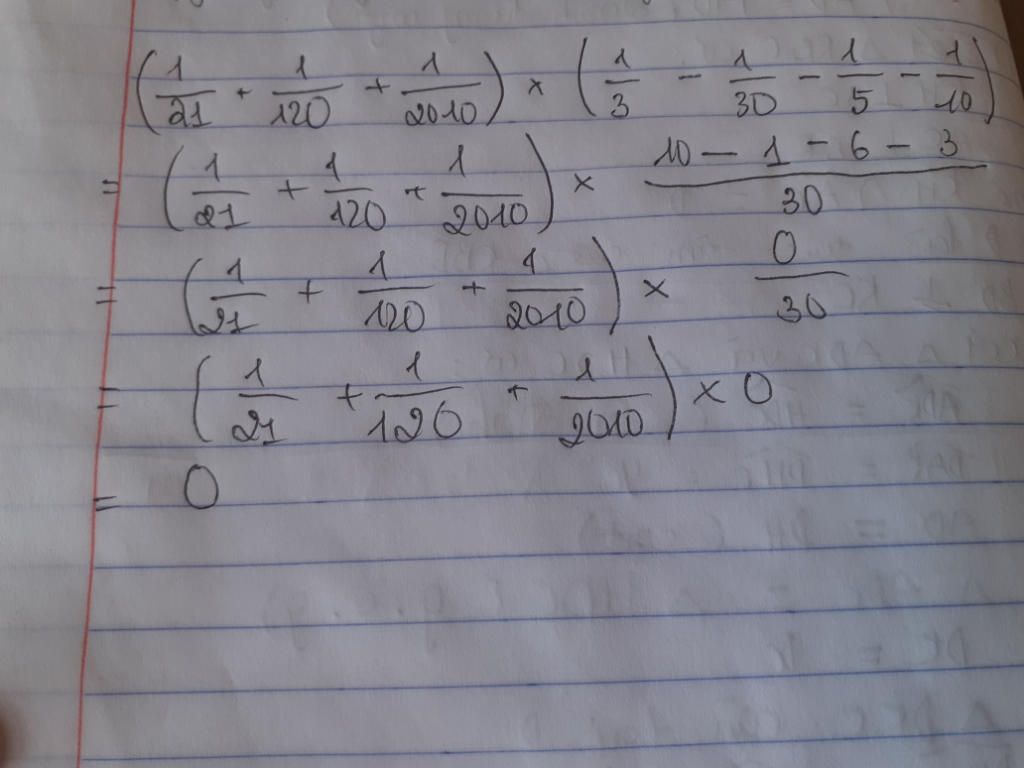 (1/21 + 1/120 + 1/2010) × (1/3 - 1/30 - 1/5 - 1/10)
= (1/21 + 1/120 + 1/2010) × (10 - 1 - 6 - 3)/30
= (1/21 + 1/120 + 1/2010) × 0/30
= (1/21 + 1/120 + 1/2010) × 0
= 0